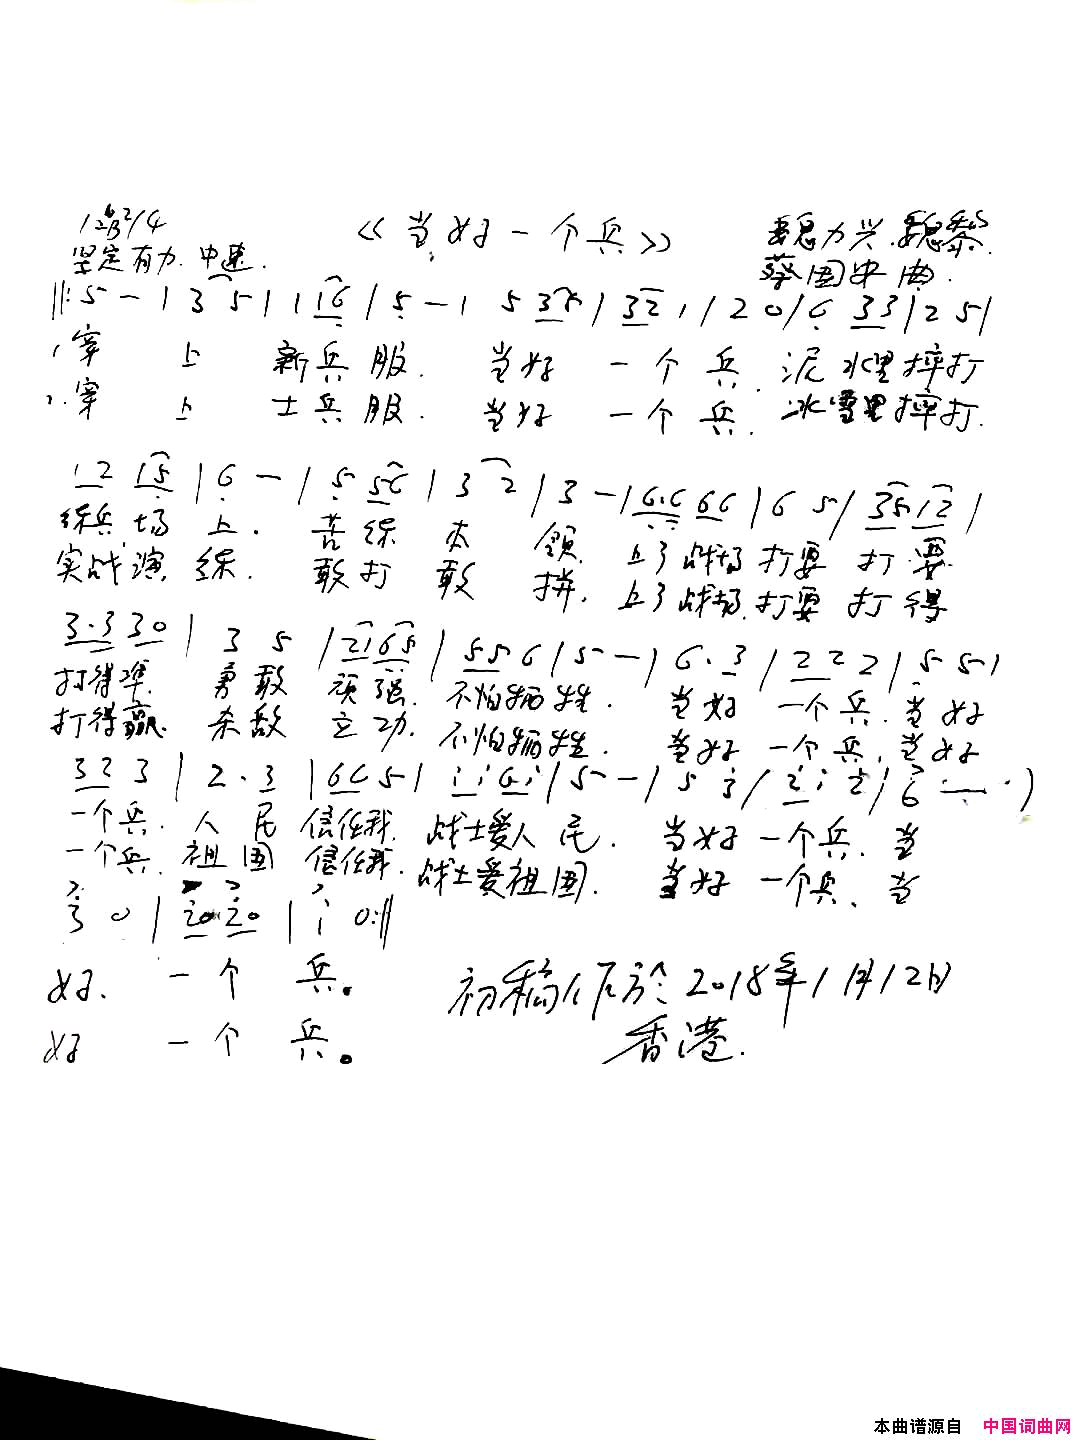 《当好一个兵》
坚定有力 中速.
魏力兴.魏黎
蔡国中 曲.
5 - | 3 5 | 1 1 6 | 5 - | 5 3 5 | 3 2 1 | 2 0 | 6 3 3 | 2 5 |
1.穿 上 新兵服. 当好 一个兵. 泥水里摔打
2.穿 上 士兵服. 当好 一个兵. 冰雪里摔打.
1 2 1 5 | 6 - | 5 5 6 | 3 2 | 3 - | 6.6 6 6 | 6 5 | 3 5 1 2 |
练兵场上. 苦练本领. 上了战场打要打要
实战演练. 敢打敢拼. 上了战场.打要打得
3.3 3 0 | 3 5 | 2 1 6 5 | 5 5 6 | 5 - | 6.3 | 2 2 2 | 5 5 |
打得準. 勇敢顽强. 不怕牺牲. 当好一个兵.当好
打得赢. 杀敌立功. 不怕牺牲. 当好一个兵,当好
3 2 3 | 2.3 | 6 6 5 | i i 6 i | 5 - | 5 3 | 2 i 2 | 6 - - )
一个兵. 人民信任我. 战士爱人民. 当好一个兵.当
一个兵.祖国信任我.战士爱祖国. 当好一个兵、当
3 0 | 2 0 2 0 | i 0 :||
好. 一个兵。
好 一个兵。
初稿作於2018年1月12日
香港.
本曲谱源自 中国词曲网